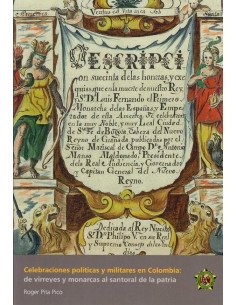 DESCRIPCI
on succinta de las honras, y exe
quias que en la muerte de nuestro Rey,
y Sr. D. Luis Fernando el Primero
Monarcha de las Españas y Empe
radores de esta America Se celebraron
en la muy Noble, y muy Leal Ciudad
de Bogota Cabeza del Nuevo
Reyno de Granada publicadas por el
Señor Mariscal de Campo Dn. Antonio
Manso Maldonado, Presidente,
de la Real Audiencia, y Governador
y Capitan General del Nuevo
Reyno.
Dedicada al Rey Nuestro
Sr. D. Philipo V. en su Real
y Supremo Consejo de las
Celebraciones políticas y militares en Colombia:
de virreyes y monarcas al santoral de la patria
Roger Pita Pico